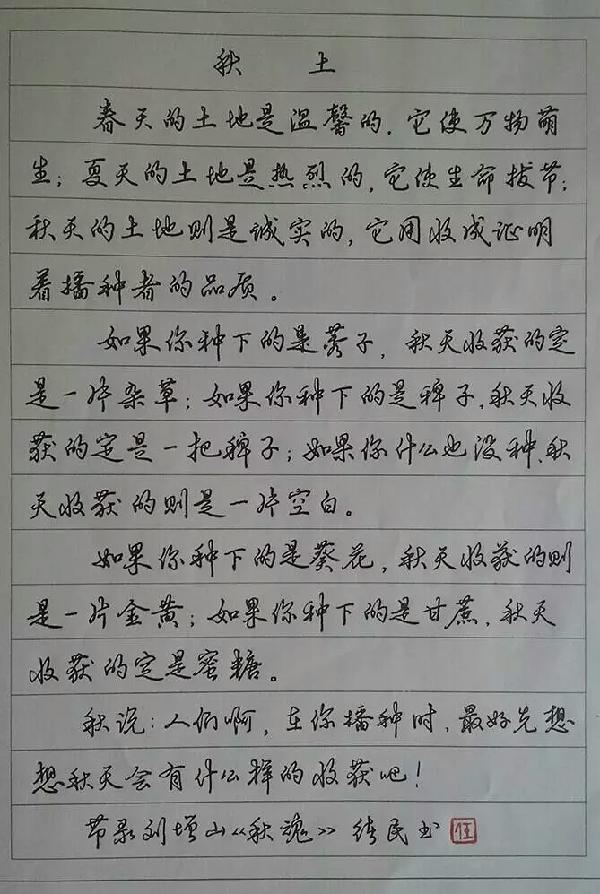 秋 土
春天的土地是温馨的，它使万物萌
生；夏天的土地是热烈的，它使生命拔节；
秋天的土地则是诚实的，它用收成证明
着播种者的品质。
如果你种下的是莠子，秋天收获的定
是一片杂草；如果你种下的是稗子，秋天收
获的定是一把稗子；如果你什么也没种，秋
天收获的则是一片空白。
如果你种下的是葵花，秋天收获的则
是一片金黄；如果你种下的是甘蔗，秋天
收获的定是蜜糖。
秋说：人们啊，在你播种时，最好先想
想秋天会有什么样的收获吧！
节录刘增山《秋魂》 民书